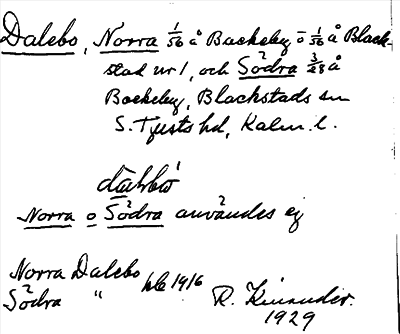 Dalebo, Norra 1/56 å Backeby o 1/56 å Black-
stad nr 1, och Södra 3/28 å
Backeby, Blackstads sn
S. Tjusts hd, Kalm. l.
Norra o Södra användes ej
Norra Dalebo bl 1916
Södra "
R. Kinander.
1929